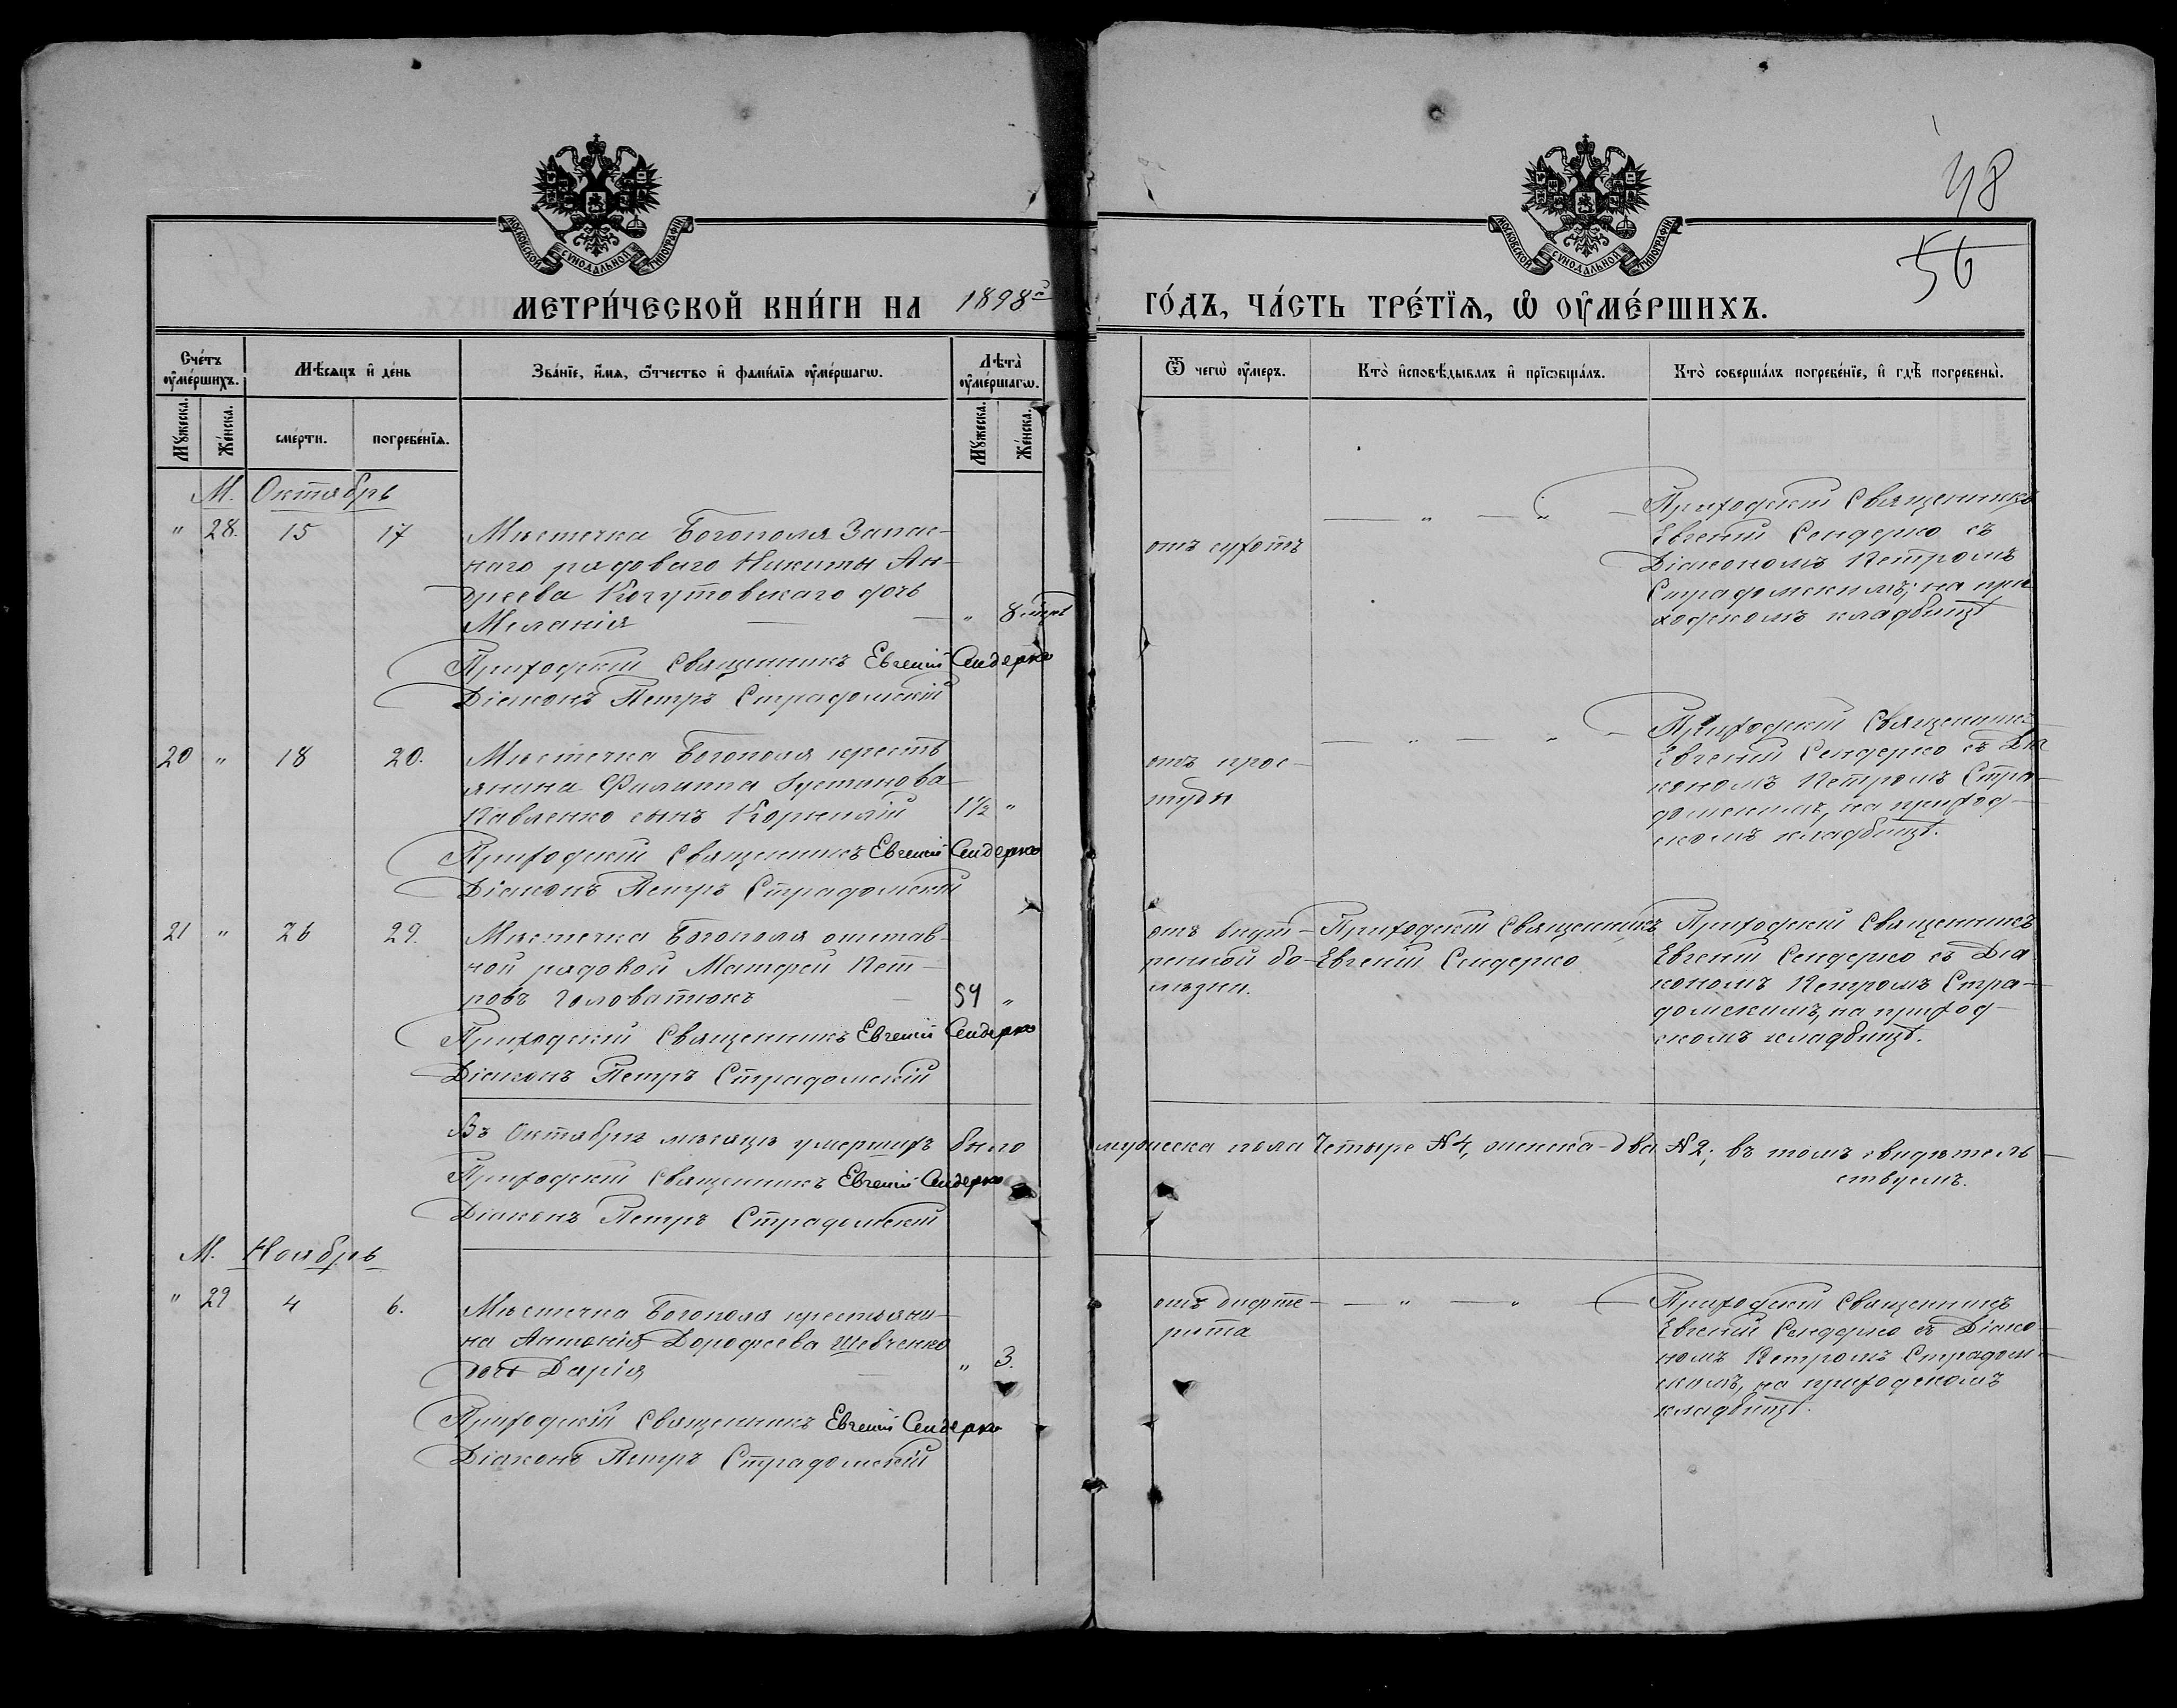 48
56
МОСКОВСКОЙ СѴНОДАЛЬНОЙ ТИПОГРАФІИ
МОСКОВСКОЙ СѴНОДАЛЬНОЙ ТИПОГРАФІИ
МЕТРИ́ЧЕСКОЙ КНИ́ГИ НА 1898й
ГО́ДЪ, ЧА́СТЬ ТРЕ́ТЇѦ, Ѽ ОУ҆МЕ́РШИХЪ.
Сче́тъ оу҆ме́ршихъ.
Мѣ́сяцъ и҆ де́нь
Зва́нїе, и҆́мя, ѻ҆́тчество и҆ фами́лїя оу҆ме́ршагѡ.
Лѣта̀ оу҆ме́ршагѡ.
Ѿ чегѡ̀ оу҆́меръ.
Кто̀ и҆сповѣ́дывалъ и҆ прїѡбща́лъ.
Кто̀ соверша́лъ погребе́нїе, и҆ гдѣ̀ погребены̀.
Мꙋ́жеска. Же́нска. сме́рти. погребе́нїя. Мꙋ́жеска. Же́нска.
М. Октябрь
" 28. 15 17 Мѣстечка Богополя Запас-
наго рядоваго Никиты Ан-
дреева Когутовскаго дочь
Меланія — — " 8 мѣс
отъ сухотъ
— " — " —
Приходскій Священникъ
Евгеній Сендерко съ
Діакономъ Петромъ
Страдомскимъ; на при
ходскомъ кладбищѣ
Приходскій Священникъ Евгеній Сендерко
Діаконъ Петръ Страдомскій
20 " 18 20. Мѣстечка Богополя кресть
янина Филиппа Іустинова
Павленко сынъ Корнилій 1½ "
отъ прос-
туды
— " — " —
Приходскій Священникъ
Евгеній Сендерко съ Діа
кономъ Петромъ Стра-
домскимъ, на приход-
скомъ кладбищѣ.
Приходскій Священникъ Евгеній Сендерко
Діаконъ Петръ Страдомскій
21 " 26 29. Мѣстечка Богополя отстав-
ной рядовой Матфей Пет-
ровъ Головатюкъ — 54 "
отъ внут-
ренной бо-
лѣзни.
Приходскій Священникъ
Евгеній Сендерко
Приходскій Священникъ
Евгеній Сендерко съ Діа
кономъ Петромъ Стра-
домскимъ, на приход-
скомъ кладбищѣ.
Приходскій Священникъ Евгеній Сендерко
Діаконъ Петръ Страдомскій
Въ Октябрѣ мѣсяцѣ умершихъ было мужеска пола Четыре № 4, женска-два № 2; въ томъ свидѣтель-
ствуемъ.
Приходскій Священникъ Евгеній Сендерко
Діаконъ Петръ Страдомскій
М. Ноябрь
" 29 4 6. Мѣстечка Богополя крестьяни-
на Антонія Дорофеева Шевченко
дочь Дарія — " 3.
отъ дифте-
рита
— " — " —
Приходскій Священникъ
Евгеній Сендерко съ Діако-
номъ Петромъ Страдом-
скимъ, на приходскомъ
кладбищѣ.
Приходскій Священникъ Евгеній Сендерко
Діаконъ Петръ Страдомскій